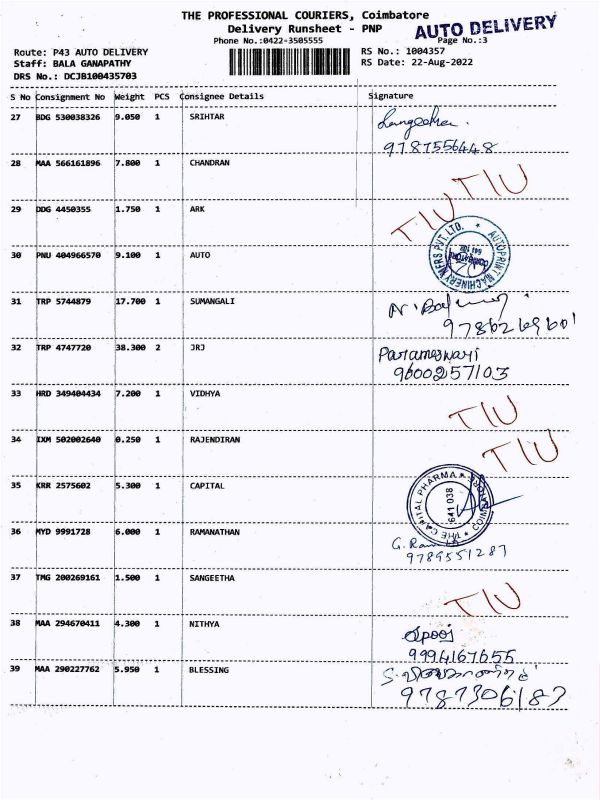 THE PROFESSIONAL COURIERS, Coimbatore
Delivery Runsheet - PNP
AUTO DELIVERY
Phone No.:0422-3505555
Page No.:3
Route: P43 AUTO DELIVERY
RS No.: 1004357
Staff: BALA GANAPATHY
RS Date: 22-Aug-2022
DRS No.: DCJB100435703
S No Consignment No Weight PCS Consignee Details Signature
27 BDG 530038326 9.050 1 SRIHTAR
9787556448
28 MAA 566161896 7.800 1 CHANDRAN TIU
29 DDG 4450355 1.750 1 ARK TIU
30 PNU 404966570 9.100 1 AUTO
AUTOPRINT MACHINERY MFRS PVT. LTD.
31 TRP 5744879 17.700 1 SUMANGALI
32 TRP 4747720 38.300 2 JRJ Parameswari
9600257103
33 HRD 349404434 7.200 1 VIDHYA TIU
34 IXM 502002640 0.250 1 RAJENDIRAN TIU
35 KRR 2575602 5.300 1 CAPITAL
THE CAPITAL PHARMA COIMBATORE
641 038
36 MYD 9991728 6.000 1 RAMANATHAN
9789551287
37 TMG 200269161 1.500 1 SANGEETHA TIU
38 MAA 294670411 4.300 1 NITHYA
9994167655
39 MAA 290227762 5.950 1 BLESSING
9787306187